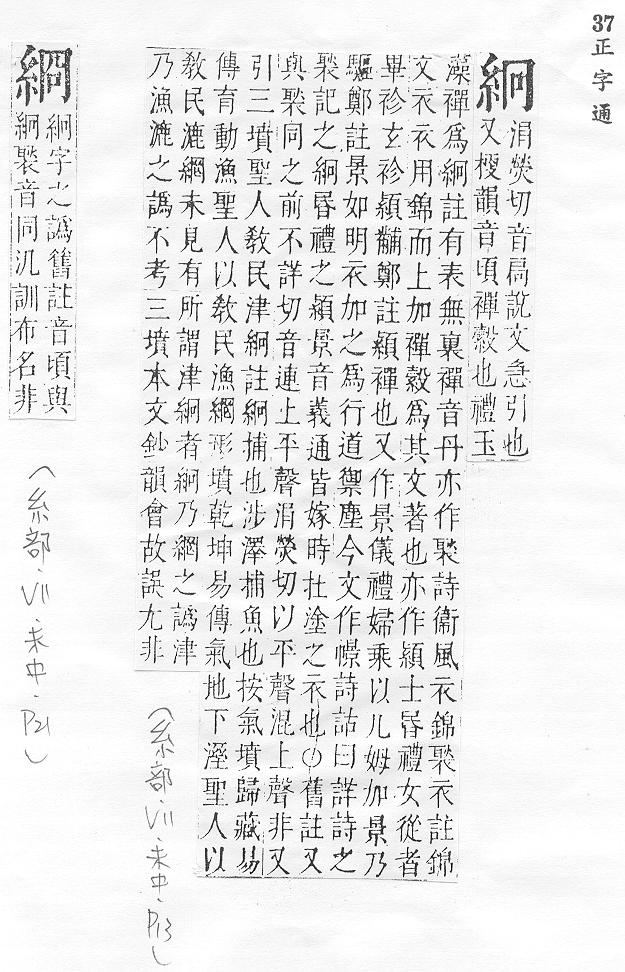 37正字通
絅
涓熒切音扃說文急引也
又梗韻音頃襌縠也禮玉
藻襌爲絅註有表無裏襌音丹亦作褧詩衞風衣錦褧衣註錦
文衣衣用錦而上加襌縠爲其文著也亦作穎士昏禮女從者
畢袗玄袗穎黼鄭註穎襌也又作景儀禮婦乘以几姆加景乃
驅鄭註景如明衣加之爲行道禦塵今文作憬詩詁曰詳詩之
褧記之絅昏禮之穎景音義通皆嫁時在塗之衣也○舊註又
與褧同之前不詳切音連上平聲涓熒切以平聲混上聲非又
引三墳聖人敎民津絅註絅捕也涉澤捕魚也按氣墳歸藏易
傳育動漁聖人以敎民漁網形墳乾坤易傳氣地下溼聖人以
敎民漉網未見有所謂津絅者絅乃網之譌津
乃漁漉之譌不考三墳本文鈔韻會故誤尤非
(糸部·VII·未中·P13)
綗
絅字之譌舊註音頃與
絅褧音同汎訓布名非
(糸部·VII·未中·P21)